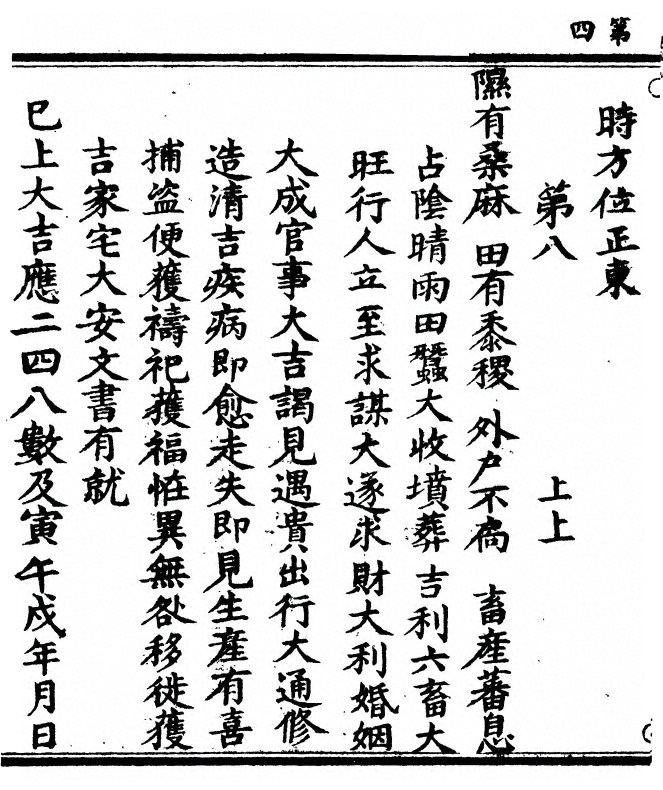 第四
時方位正東
第八 上上
隰有桑麻 田有黍稷 外户不扄 畜產蕃息
占陰晴雨田蠶大收墳葬吉利六畜大
旺行人立至求謀大遂求財大利婚姻
大成官事大吉謁見遇貴出行大通修
造清吉疾病即愈走失即見生產有喜
捕盜便獲禱祀獲福怪異無咎移徙獲
吉家宅大安文書有就
巳上大吉應二四八數及寅午戍年月日